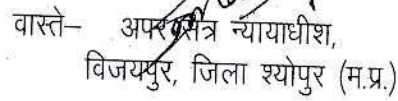 वास्ते– अपर सत्र न्यायाधीश,
विजयपुर, जिला श्योपुर (म.प्र.)